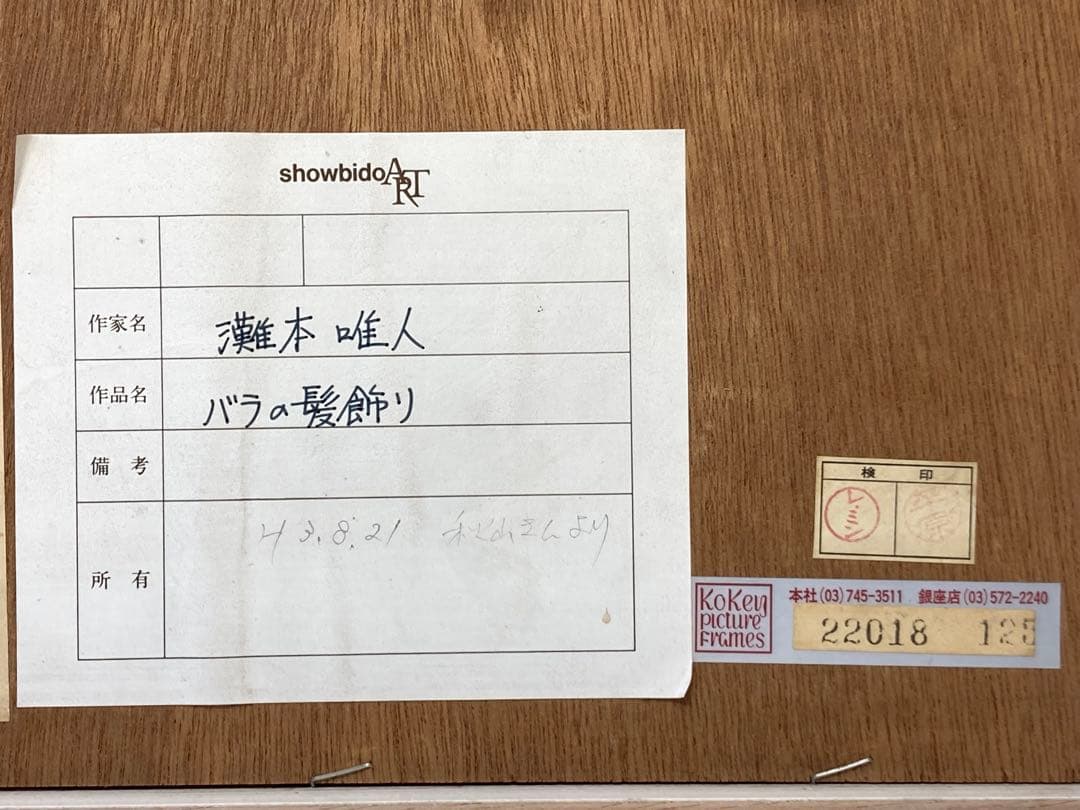 showbido ART
作家名 灘本 唯人
作品名 バラの髪飾り
備 考
所 有 43.8.21 秋山さんより
検 印
レ・ミン
KoKey picture frames
本社(03)745-3511 銀座店(03)572-2240
22018 125